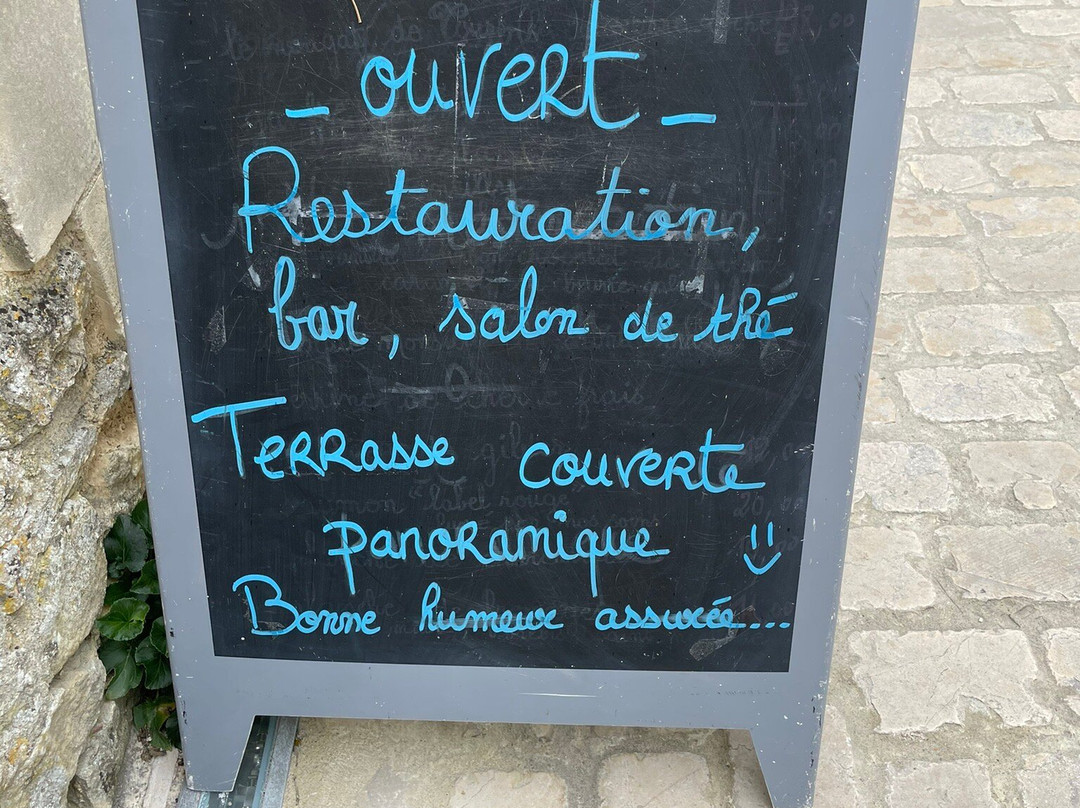 - ouvert -
Restauration,
bar, salon de thé
Terrasse couverte
panoramique :)
Bonne humeur assurée...